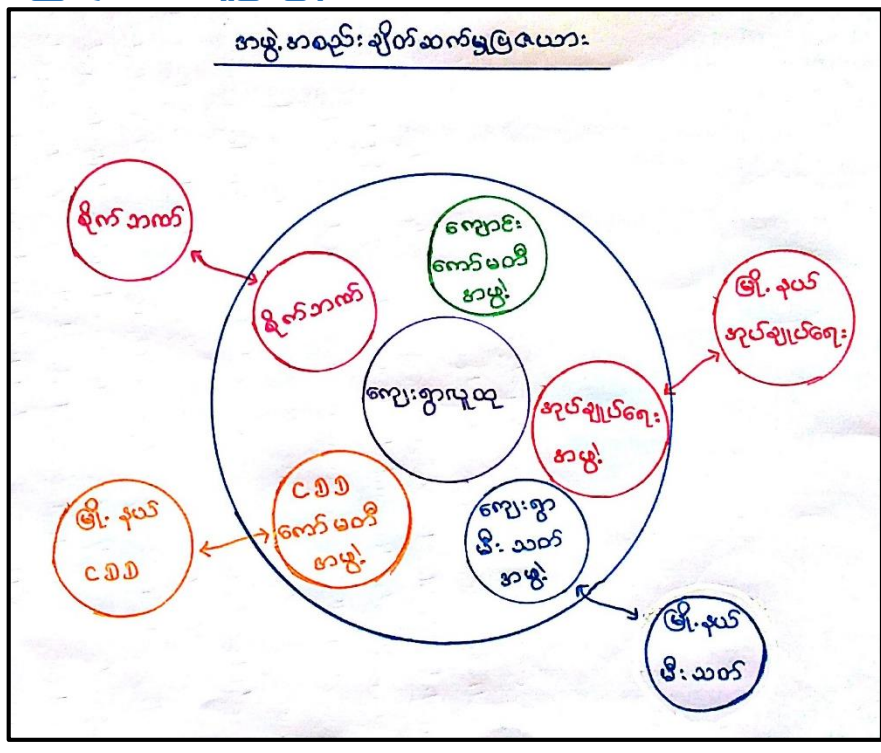 အဖွဲ့အစည်းချိတ်ဆက်မှုပြဇယား
စိုက်ဘဏ်
စိုက်ဘဏ်
ကျောင်း
ကော်မတီ
အဖွဲ့
မြို့နယ်
အုပ်ချုပ်ရေး
ကျေးရွာလူထု
အုပ်ချုပ်ရေး
အဖွဲ့
CDD
ကော်မတီ
အဖွဲ့
မြို့နယ်
CDD
ကျေးရွာ
မီးသတ်
အဖွဲ့
မြို့နယ်
မီးသတ်